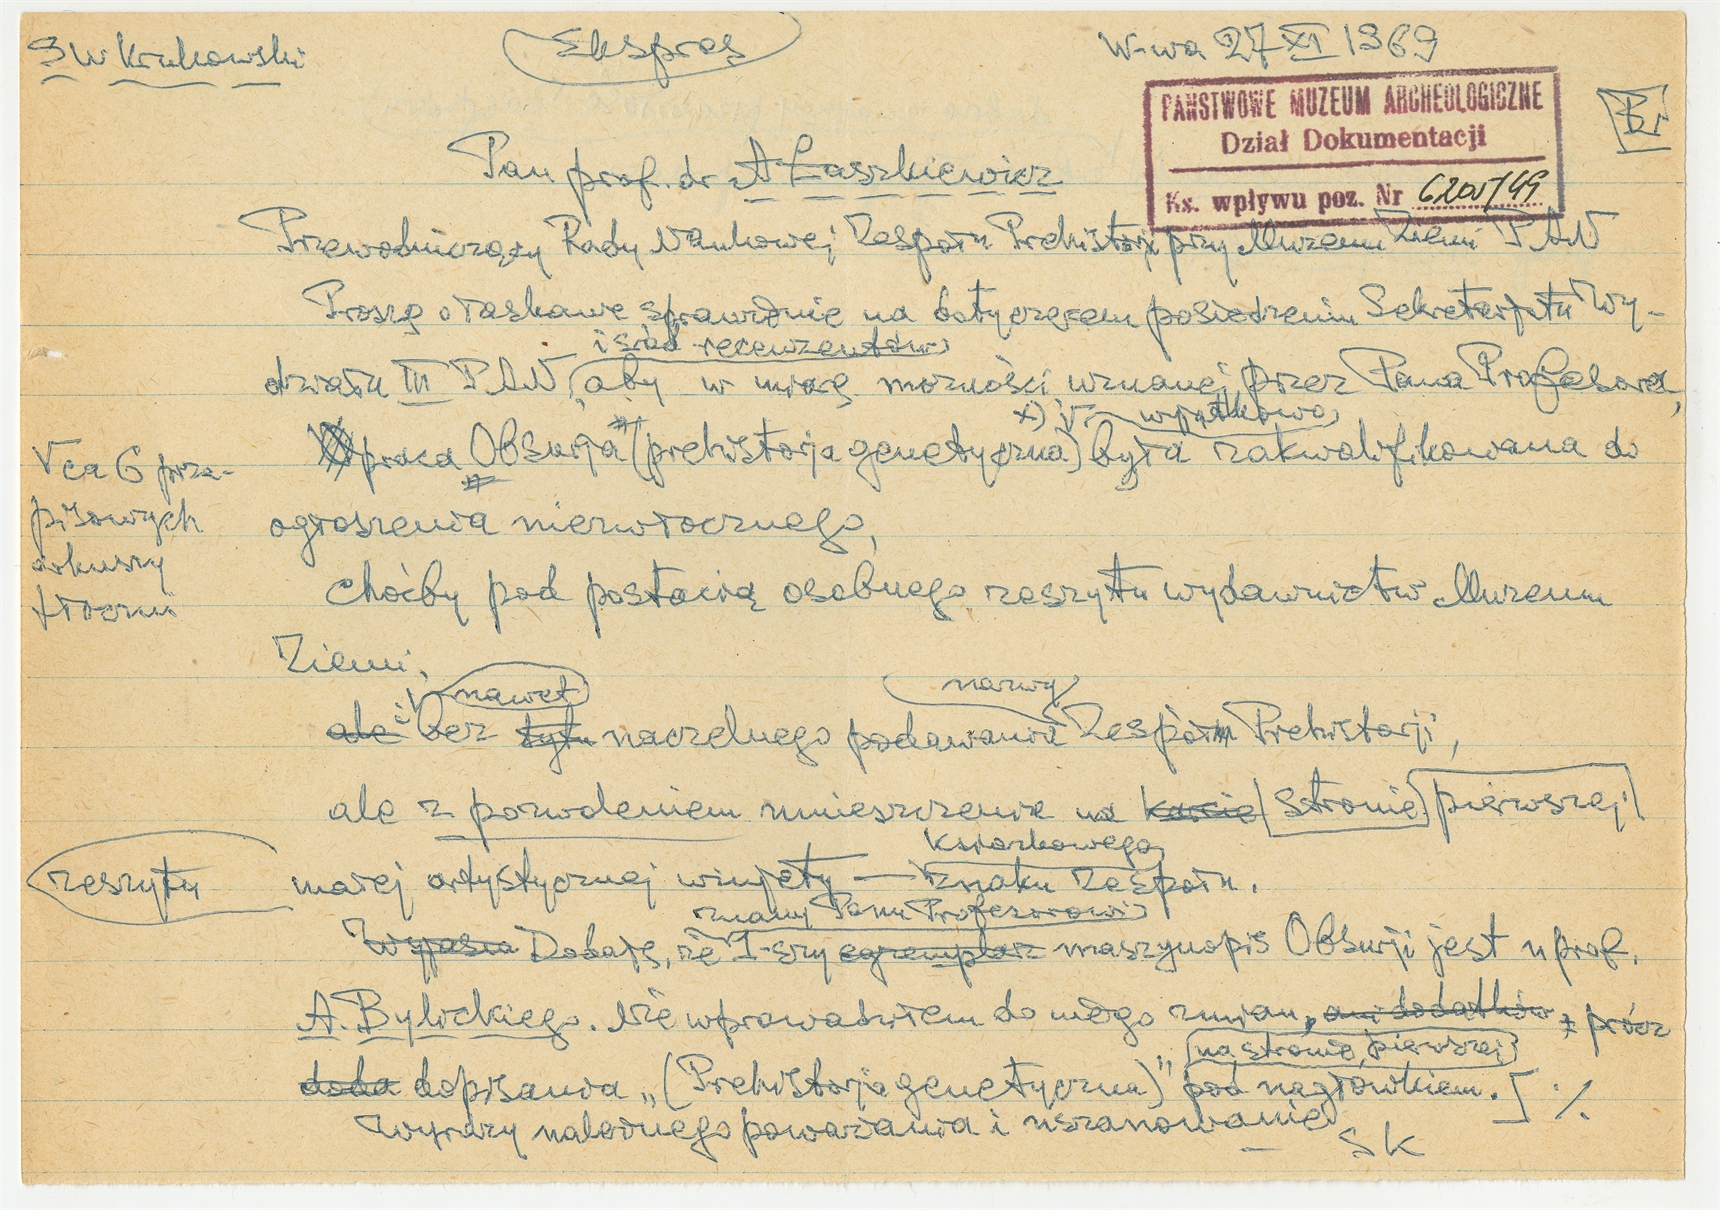 S W Krukowski
Ekspres
W-wa 27 XI 1969
PAŃSTWOWE MUZEUM ARCHEOLOGICZNE
Dział Dokumentacji
Ks. wpływu poz. Nr
Pan prof. dr A Łaszkiewicz
Przewodniczący Rady Naukowej Zespołu Prehistorji przy Muzeum Ziemi PAN
Proszę o łaskawe sprawdzenie na dotyczącem posiedzeniu Sekretarjatu Wy-
i śród recenzentów
działu III PAN, aby w miarę możności uznanej przez Pana Profesora,
x) V wyjątkowo
praca Obsurja (prehistorja genetyczna) była zakwalifikowana do
V ca 6 prze-
pisowych
arkuszy
tłoczni
ogłoszenia niezwłocznego,
choćby pod postacią osobnego zeszytu wydawnictw Muzeum
Ziemi,
nawet
nazwy
ale i bez tytu naczelnego podawania Zespołu Prehistorji,
ale z pozwoleniem umieszczenia na karcie stronie pierwszej
książkowego
zeszytu
małej artystycznej winjety — znaku Zespołu.
znany Panu Profesorowi
Dodaję, że I-szy egzemplarz maszynopis Obsurji jest u prof.
A. Bylickiego. Nie wprowadziłem do niego zmian, ani dodatków prócz
na stronie pierwszej
doda dopisania „(Prehistorja genetyczna)" pod nagłówkiem.] ./.
Wyrazy należnego poważania i uszanowanie
SK